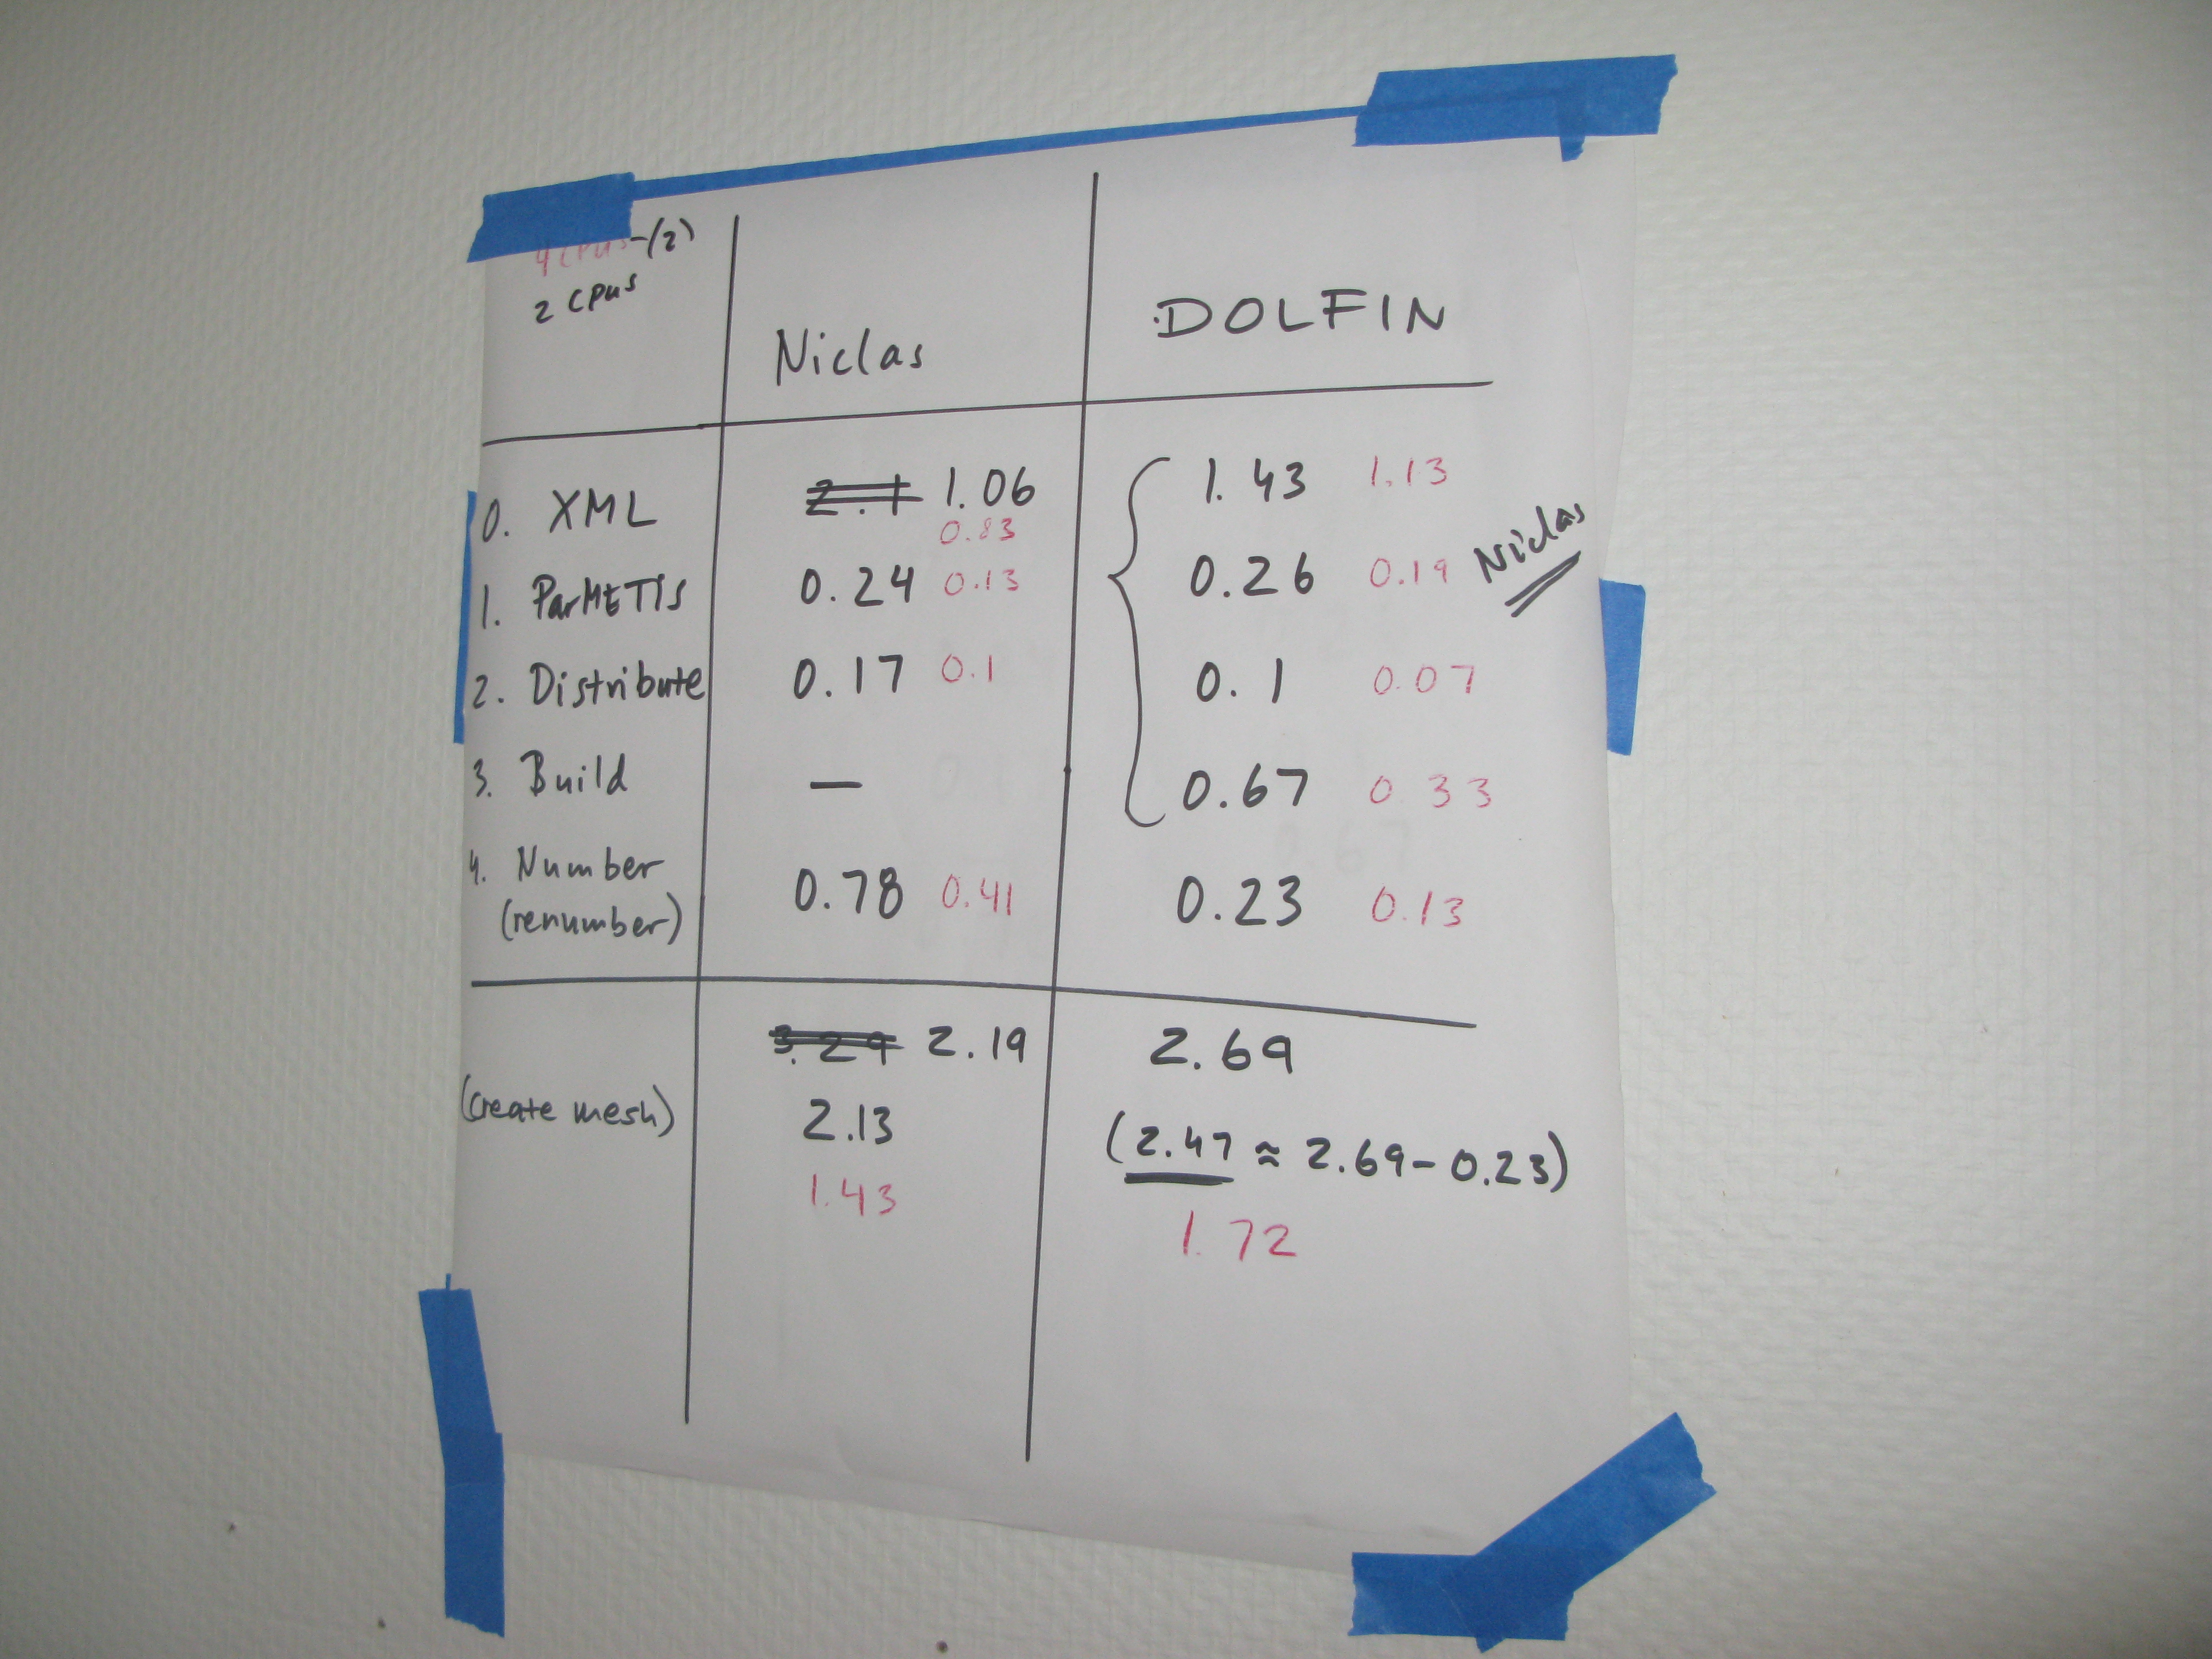 4 CPUs -(2)
2 CPUs
Niclas
DOLFIN
0. XML 2.1 1.06 1.43 1.13
0.83
1. ParMETIS 0.24 0.13 0.26 0.19 Niclas
2. Distribute 0.17 0.1 0.1 0.07
3. Build — 0.67 0.33
4. Number 0.78 0.41 0.23 0.13
(renumber)
3.29 2.19 2.69
(create mesh) 2.13 (2.47 ≈ 2.69-0.23)
1.43 1.72